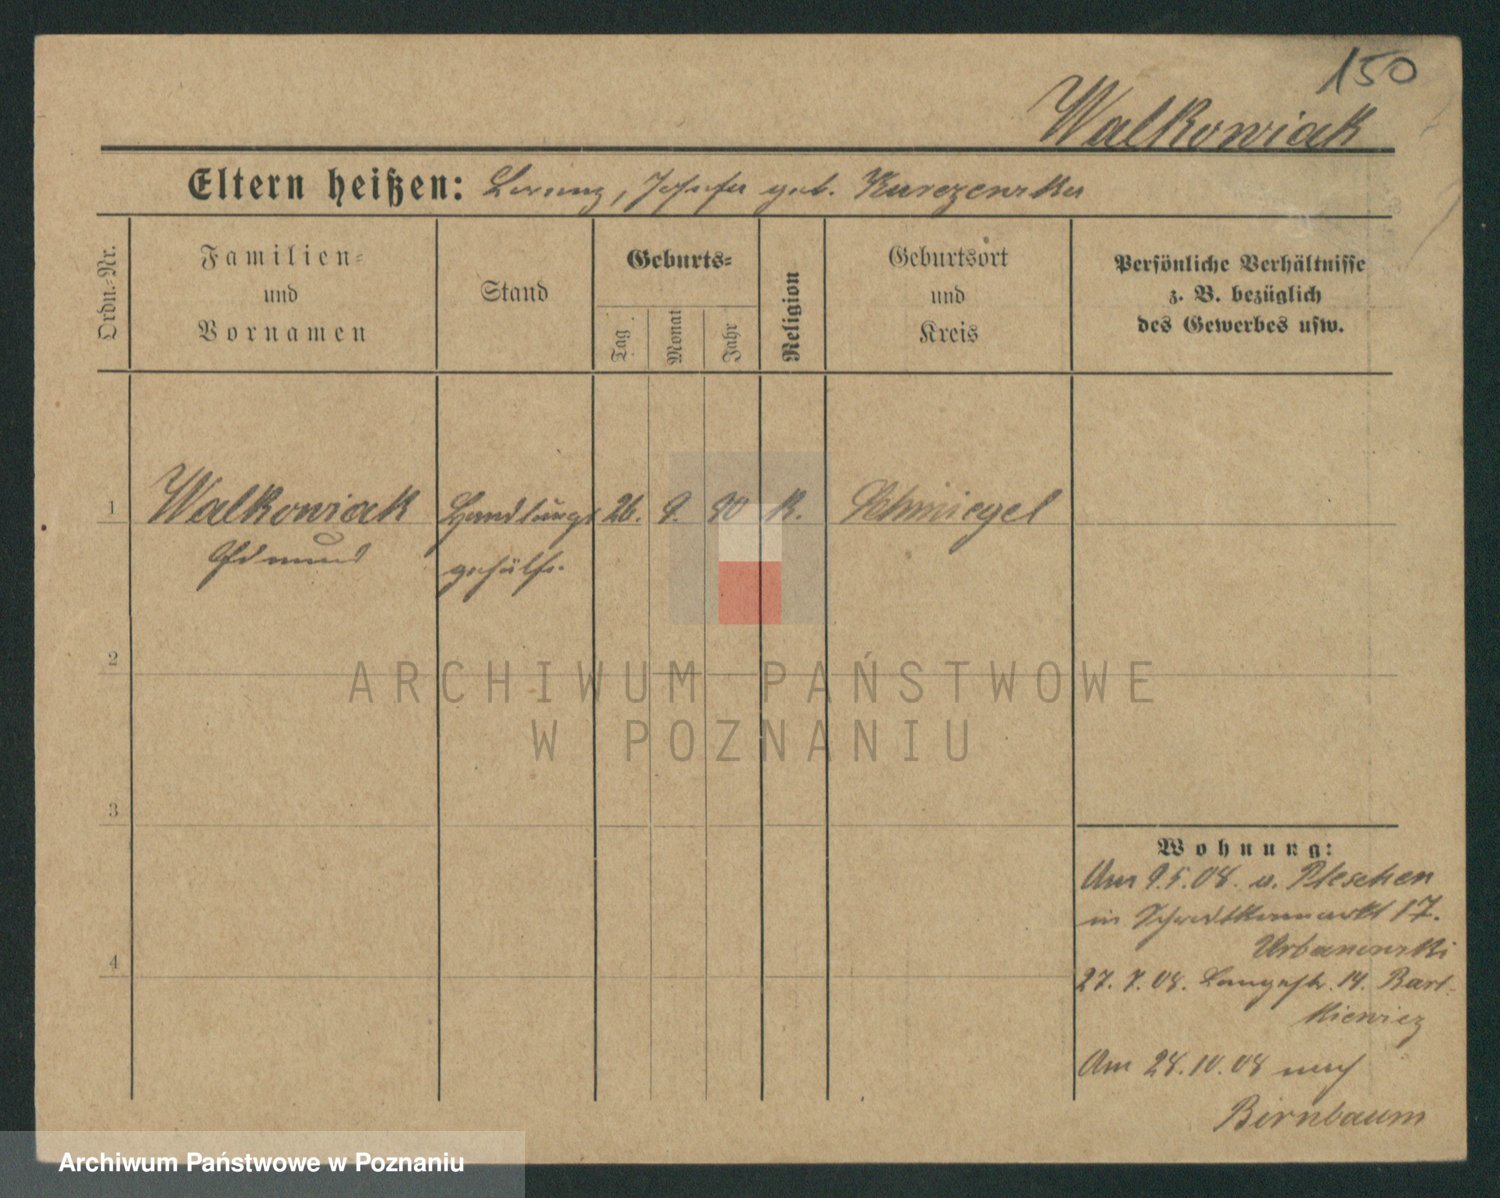 150
Walkowiak
Eltern heißen: Lorenz, Josefa geb. Kurczewska
Ordn.-Nr.
Familien-
und
Vornamen
Stand
Geburts-
Tag
Monat
Jahr
Religion
Geburtsort
und
Kreis
Persönliche Verhältnisse
z. B. bezüglich
des Gewerbes usw.
1 Walkowiak Handlungs 26. 9. 90 K. Schmiegel
Edmund gehülfe.
2
3
4
ARCHIWUM PAŃSTWOWE
W POZNANIU
Wohnung:
Am 9.5.08. v. Pleschen
in 17.
Urbanowski
27. 7. 08. Langestr. 14. Bart-
kiewicz
Am 28.10.08 nach
Birnbaum
Archiwum Państwowe w Poznaniu